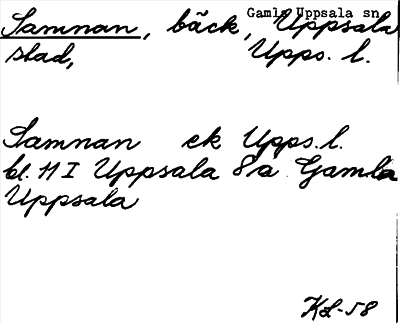 Gamla Uppsala sn
Samnan, bäck, Uppsala
stad, Upps. l.
Samnan ek Upps. l.
bl. 11 I Uppsala 8a Gamla
Uppsala
KL-58